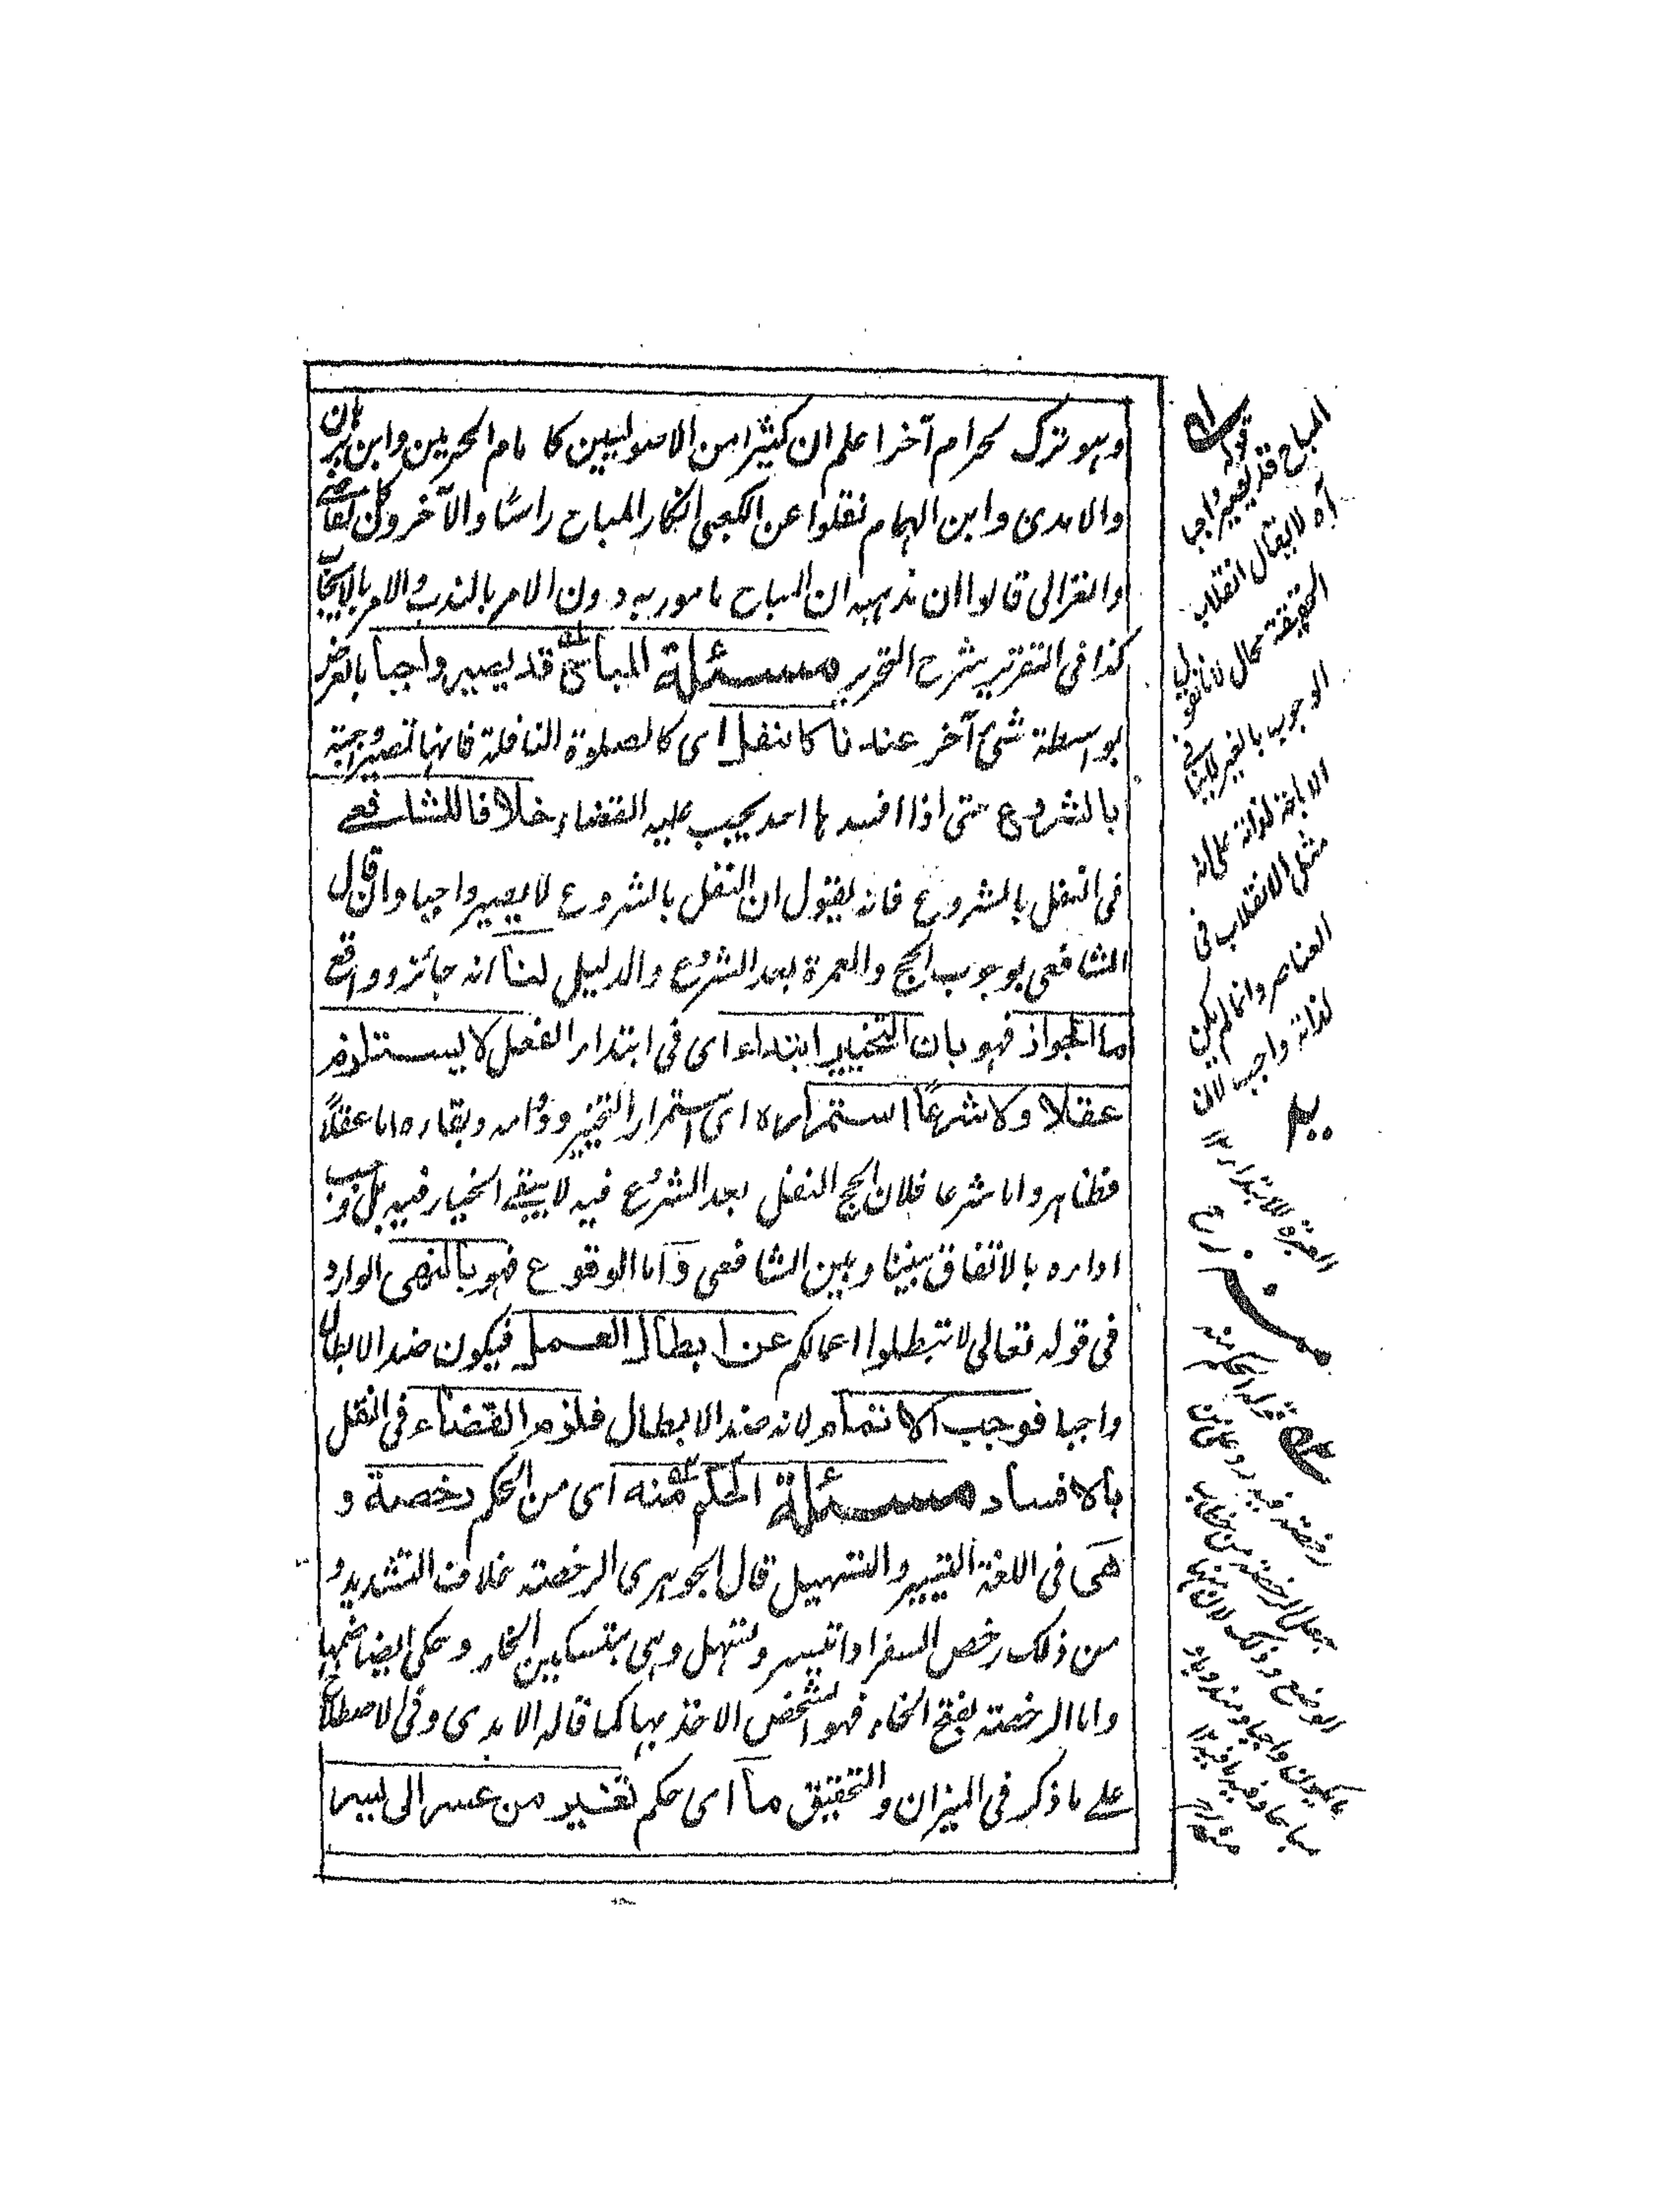 وهو ترك لحرام آخر اعلم ان كثيرا من الاصوليين كامام الحرمين وابن برهان
والآمدى وابن الهمام نقلوا عن الكعبى انكار المباح راسًا والآخرون كالقاضى
والغزالى قالوا ان مذهبه ان المباح مامور به دون الامر بالندب والامر بالايجاب
كذا فى التقرير شرح التحرير مسئلة المباح قد يصير واجبا بالعرض
بواسطة شئ آخر عندنا كالنفل اى كالصلوة النافلة فانها تصير واجبة
بالشروع حتى اذا افسدها احد يجب عليه القضاء خلافا للشافعى
فى النفل بالشروع فانه يقول ان النفل بالشروع لا يصير واجبا وان قال
الشافعى بوجوب الحج والعمرة بعد الشروع والدليل لنا انه جائز وواقع
اما الجواز فهو بان التخيير ابتداء اى فى ابتداء الفعل لا يستلزم
عقلا ولا شرعًا استمراره اى استمرار التخيير ودوامه وبقاءه اما عقلاً
فظاهر واما شرعا فلان الحج النفل بعد الشروع فيه لا يبقى الخيار فيه بل وجب
اداءه بالاتفاق بيننا وبين الشافعى واما الوقوع فهو بالنهى الوارد
فى قوله تعالى لا تبطلوا اعمالكم عن ابطال العمل فيكون ضد الابطال
واجبا فوجب الاتمام لانه ضد الابطال فلزم القضاء فى النفل
بالافساد مسئلة الحكم منه اى من الحكم رخصة و
هى فى اللغة التيسير والتسهيل قال الجوهرى الرخصة خلاف التشديد و
من ذلك رخص السفر اذا تيسر وتسهل وهى بتسكين الخاء وحكى ايضا ضمها
واما الرخصة بفتح الخاء فهو الشخص الآخذ بها كما قاله الآمدى وفى الاصطلاح
على ما ذكر فى الميزان والتحقيق ما اى حكم تغير من عسر الى يسر
قوله
المباح قد يصير واجبا
آه لا يقال انقلاب
الحقيقة محال لانا نقول
الوجوب بالغير لا ينافى
الاباحة لذاته على انه
مثل الانقلاب فى
العناصر وانما لم يكن
لذاته واجب لان
العبرة للابتداء ١٢
قوله الحكم منه
رخصة